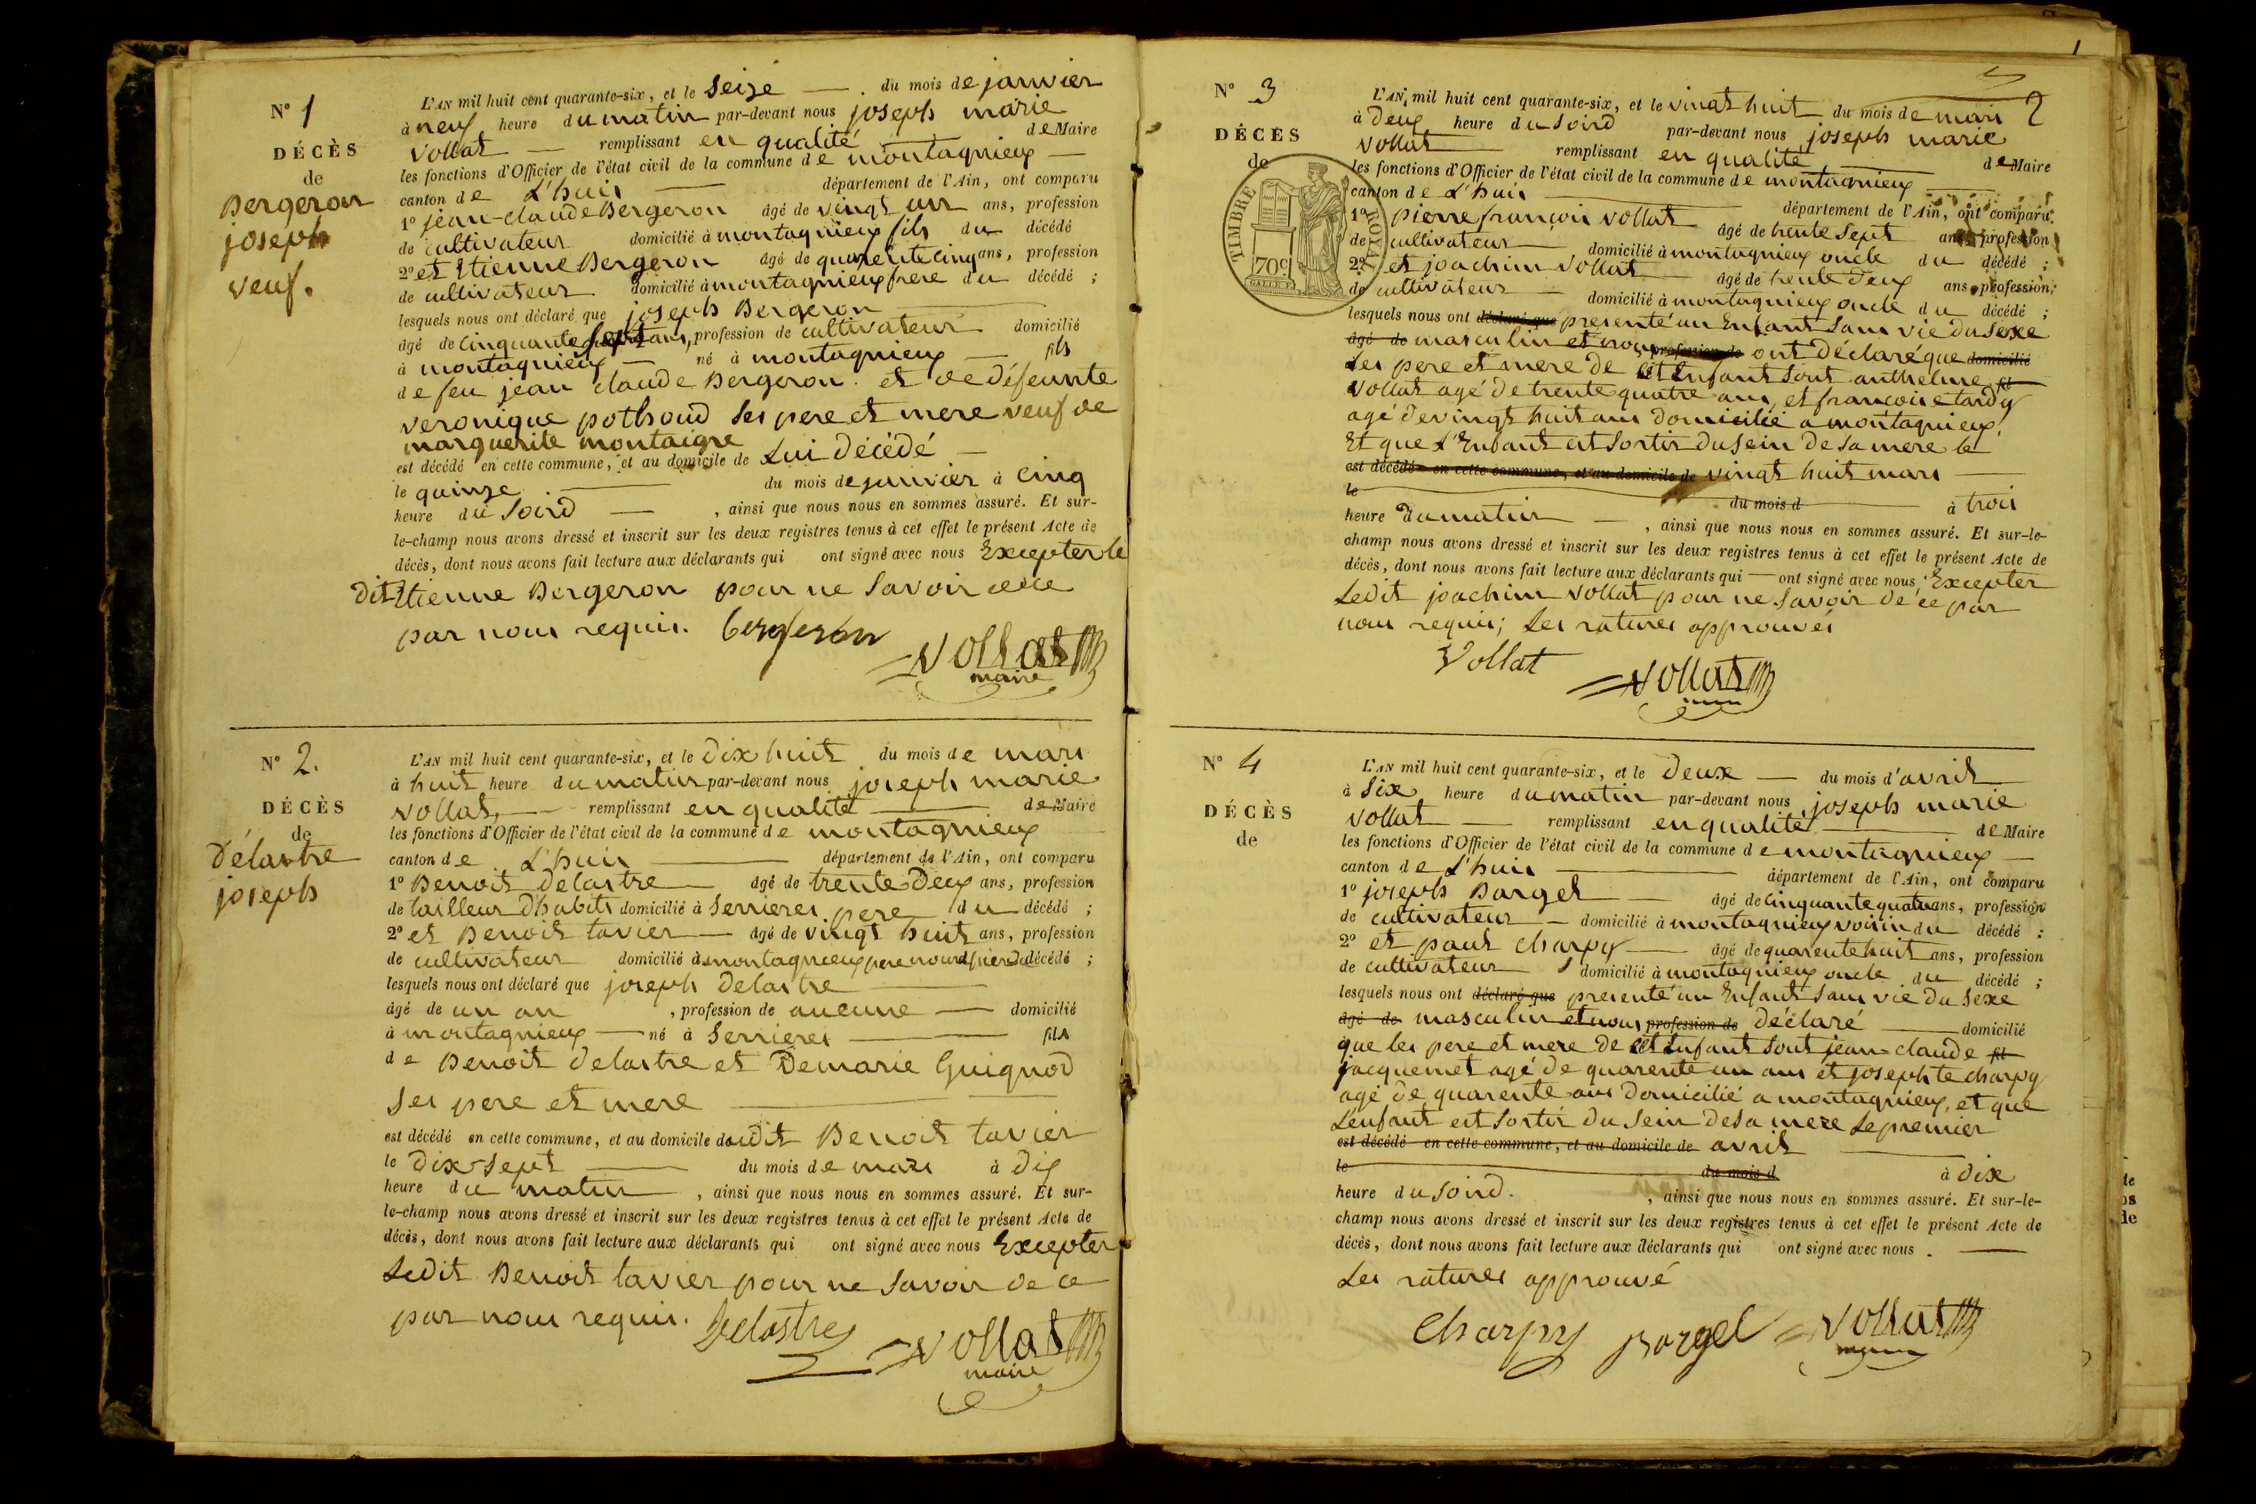 N° 1
DÉCÈS
de
Bergeron
joseph
veuf.
L'AN mil huit cent quarante-six, et le seize du mois de janvier
à neuf heure du matin par-devant nous joseph marie
vollat remplissant en qualité de Maire
les fonctions d'Officier de l'état civil de la commune de montagnieux
canton de L'huis département de l'Ain, ont comparu
1° jean-claude Bergeron âgé de vingt un ans, profession
de cultivateur domicilié à montagnieux fils du décédé
2° et Etienne Bergeron âgé de quarente cinq ans, profession
de cultivateur domicilié à montagnieux frere du décédé ;
lesquels nous ont déclaré que joseph Bergeron
âgé de cinquante sept ans, profession de cultivateur domicilié
à montagnieux né à montagnieux fils
de feu jean claude Bergeron et de défeunte
veronique pothoud ses pere et mere veuf de
marguerite montaigre
est décédé en cette commune, et au domicile de Lui décédé
le quinze du mois de janvier à cinq
heure du soird , ainsi que nous nous en sommes assuré. Et sur-
le-champ nous avons dressé et inscrit sur les deux registres tenus à cet effet le présent Acte de
décès, dont nous avons fait lecture aux déclarants qui ont signé avec nous Excepter le
dit Etienne Bergeron pour ne savoir de ce
par nous requis. bergeron
vollat
maire
N° 2.
DÉCÈS
de
Délastre
joseph
L'AN mil huit cent quarante-six, et le dix huit du mois de mars
à huit heure du matin par-devant nous joseph marie
vollat, remplissant en qualité de Maire
les fonctions d'Officier de l'état civil de la commune de montagnieux
canton de L'huis département de l'Ain, ont comparu
1° Benoit Delastre âgé de trente Deux ans, profession
de tailleur d'habits domicilié à serrieres pere du décédé ;
2° et Benoit tavier âgé de vingt huit ans, profession
de cultivateur domicilié à montagnieux pere nourdpicier du décédé ;
lesquels nous ont déclaré que joseph Delastre
âgé de un an , profession de aucune domicilié
à montagnieux né à serrieres fils
de Benoit delastre et Demarie Guignod
ses pere et mere
est décédé en cette commune, et au domicile dudit Benoit tavier
le Dix-sept du mois de mars à dix
heure du matin , ainsi que nous nous en sommes assuré. Et sur-
le-champ nous avons dressé et inscrit sur les deux registres tenus à cet effet le présent Acte de
décès, dont nous avons fait lecture aux déclarants qui ont signé avec nous Excepter
Ledit Benoit tavier pour ne savoir de ce
par nous requis. Delastre
vollat
maire
N° 3
DÉCÈS
de
TIMBRE ROYAL
70c
2
L'AN mil huit cent quarante-six, et le vingt huit du mois de mars
à Deux heure du soird par-devant nous joseph marie
vollat remplissant en qualité de Maire
les fonctions d'Officier de l'état civil de la commune de montagnieux
canton de L'huis département de l'Ain, ont comparu
1° pierre françois vollat âgé de trente sept ans, profession
de cultivateur domicilié à montagnieux oncle du décédé ;
2° et joachim vollat âgé de trente deux ans, profession
de cultivateur domicilié à montagnieux oncle du décédé ;
lesquels nous ont déclaré que presenté un Enfant sans vie du sexe
âgé de masculin et nous profession de ont déclaré que domicilié
Les pere et mere de cet Enfant sont anthelme fil
vollat agé de trente quatre ans, et françoise tardy
agé de vingt huit ans domicilié a montagnieux
Et que L'Enfant est sortir du sein de sa mere le
est décédé en cette commune, et au domicile de vingt huit mars
le du mois d à trois
heure du matin , ainsi que nous nous en sommes assuré. Et sur-le-
champ nous avons dressé et inscrit sur les deux registres tenus à cet effet le présent Acte de
décès, dont nous avons fait lecture aux déclarants qui ont signé avec nous Excepter
Ledit joachim vollat pour ne savoir de ce par
nous requis; Les ratures approuvés
Vollat
vollat
N° 4
DÉCÈS
de
L'AN mil huit cent quarante-six, et le Deux du mois d'avril
à six heure du matin par-devant nous joseph marie
vollat remplissant en qualité de Maire
les fonctions d'Officier de l'état civil de la commune de montagnieux
canton de L'huis département de l'Ain, ont comparu
1° joseph Barget âgé de cinquante quatre ans, profession
de cultivateur domicilié à montagnieux voisin du décédé ;
2° et paul charpy âgé de quarente huit ans, profession
de cultivateur domicilié à montagnieux oncle du décédé ;
lesquels nous ont déclaré que presenté un Enfant sans vie du sexe
âgé de masculin et nous profession de déclaré domicilié
que les pere et mere de cet Enfant sont jean-claude fil
jacquemet agé de quarente un ans et josephte charpy
agé de quarente ans domicilié a montagnieux, et que
L'enfant est sortir du sein de sa mere Le premier
est décédé en cette commune, et au domicile de avril
le du mois d à dix
heure du soird. , ainsi que nous nous en sommes assuré. Et sur-le-
champ nous avons dressé et inscrit sur les deux registres tenus à cet effet le présent Acte de
décès, dont nous avons fait lecture aux déclarants qui ont signé avec nous.
Les ratures approuvé
Charpy Bargel vollat